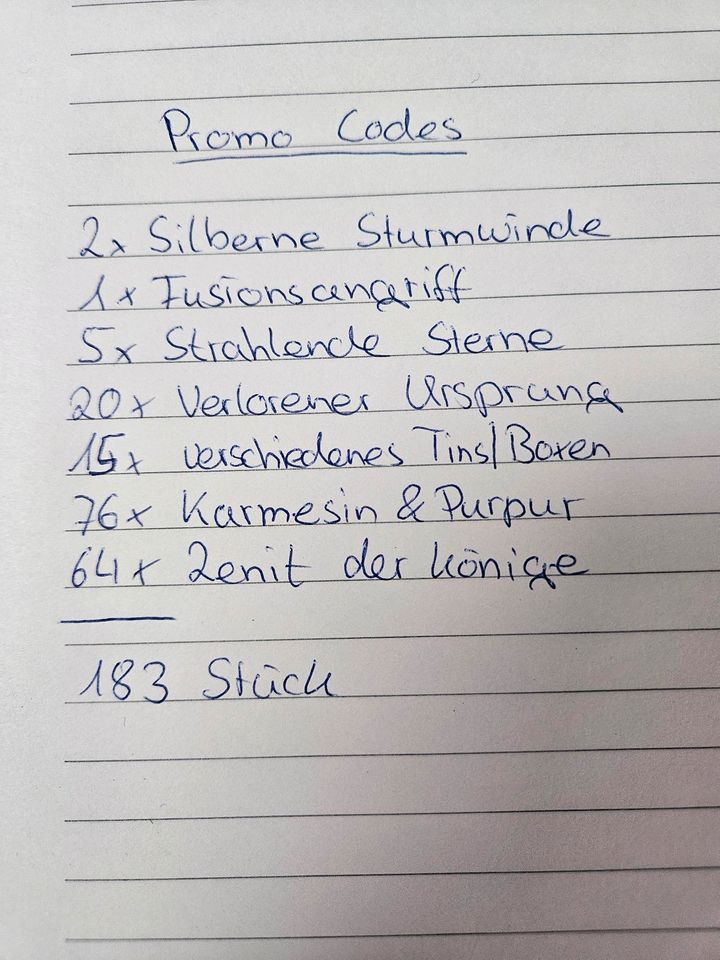 Promo Codes
2x Silberne Sturmwinde
1x Fusionsangriff
5x Strahlende Sterne
20x Verlorener Ursprung
15x verschiedenes Tins/Boxen
76x Karmesin & Purpur
64x Zenit der Könige
183 Stück